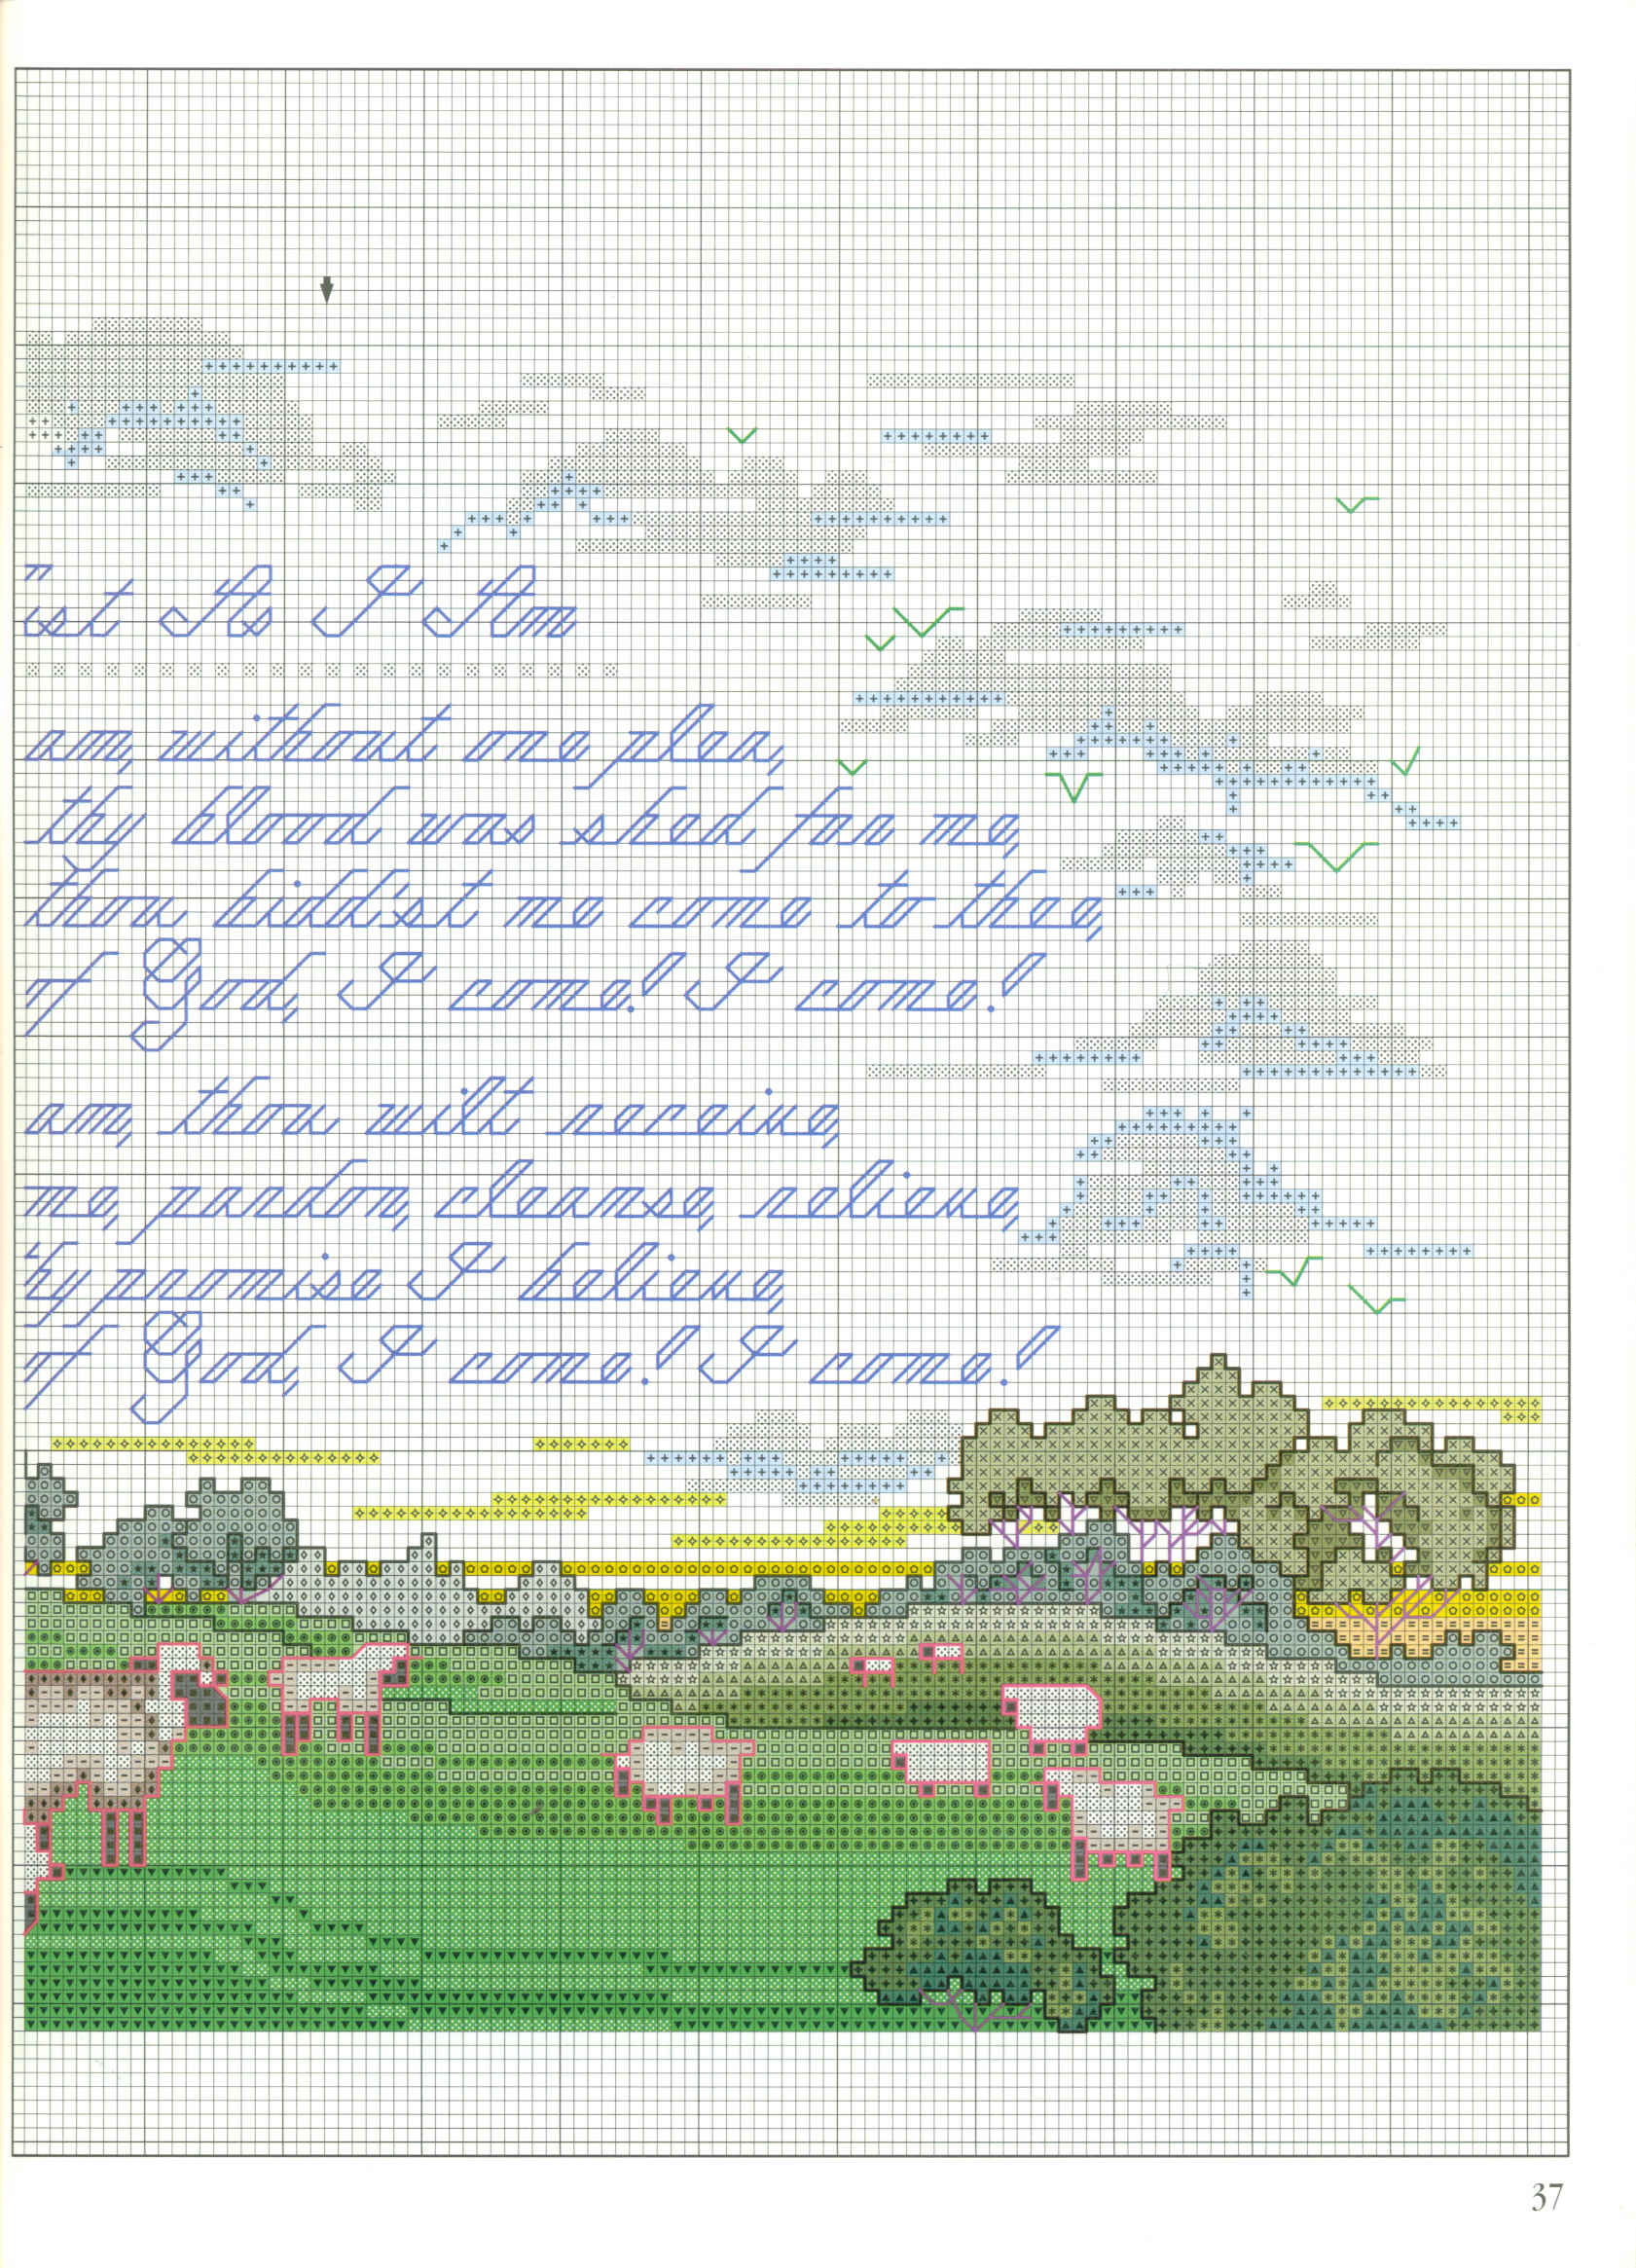 ust As I Am
am, without one plea,
thy blood was shed for me,
thou bidd'st me come to thee,
of God, I come! I come!
am, thou wilt receive,
me, pardon, cleanse, relieve,
thy promise I believe,
of God, I come! I come!
37